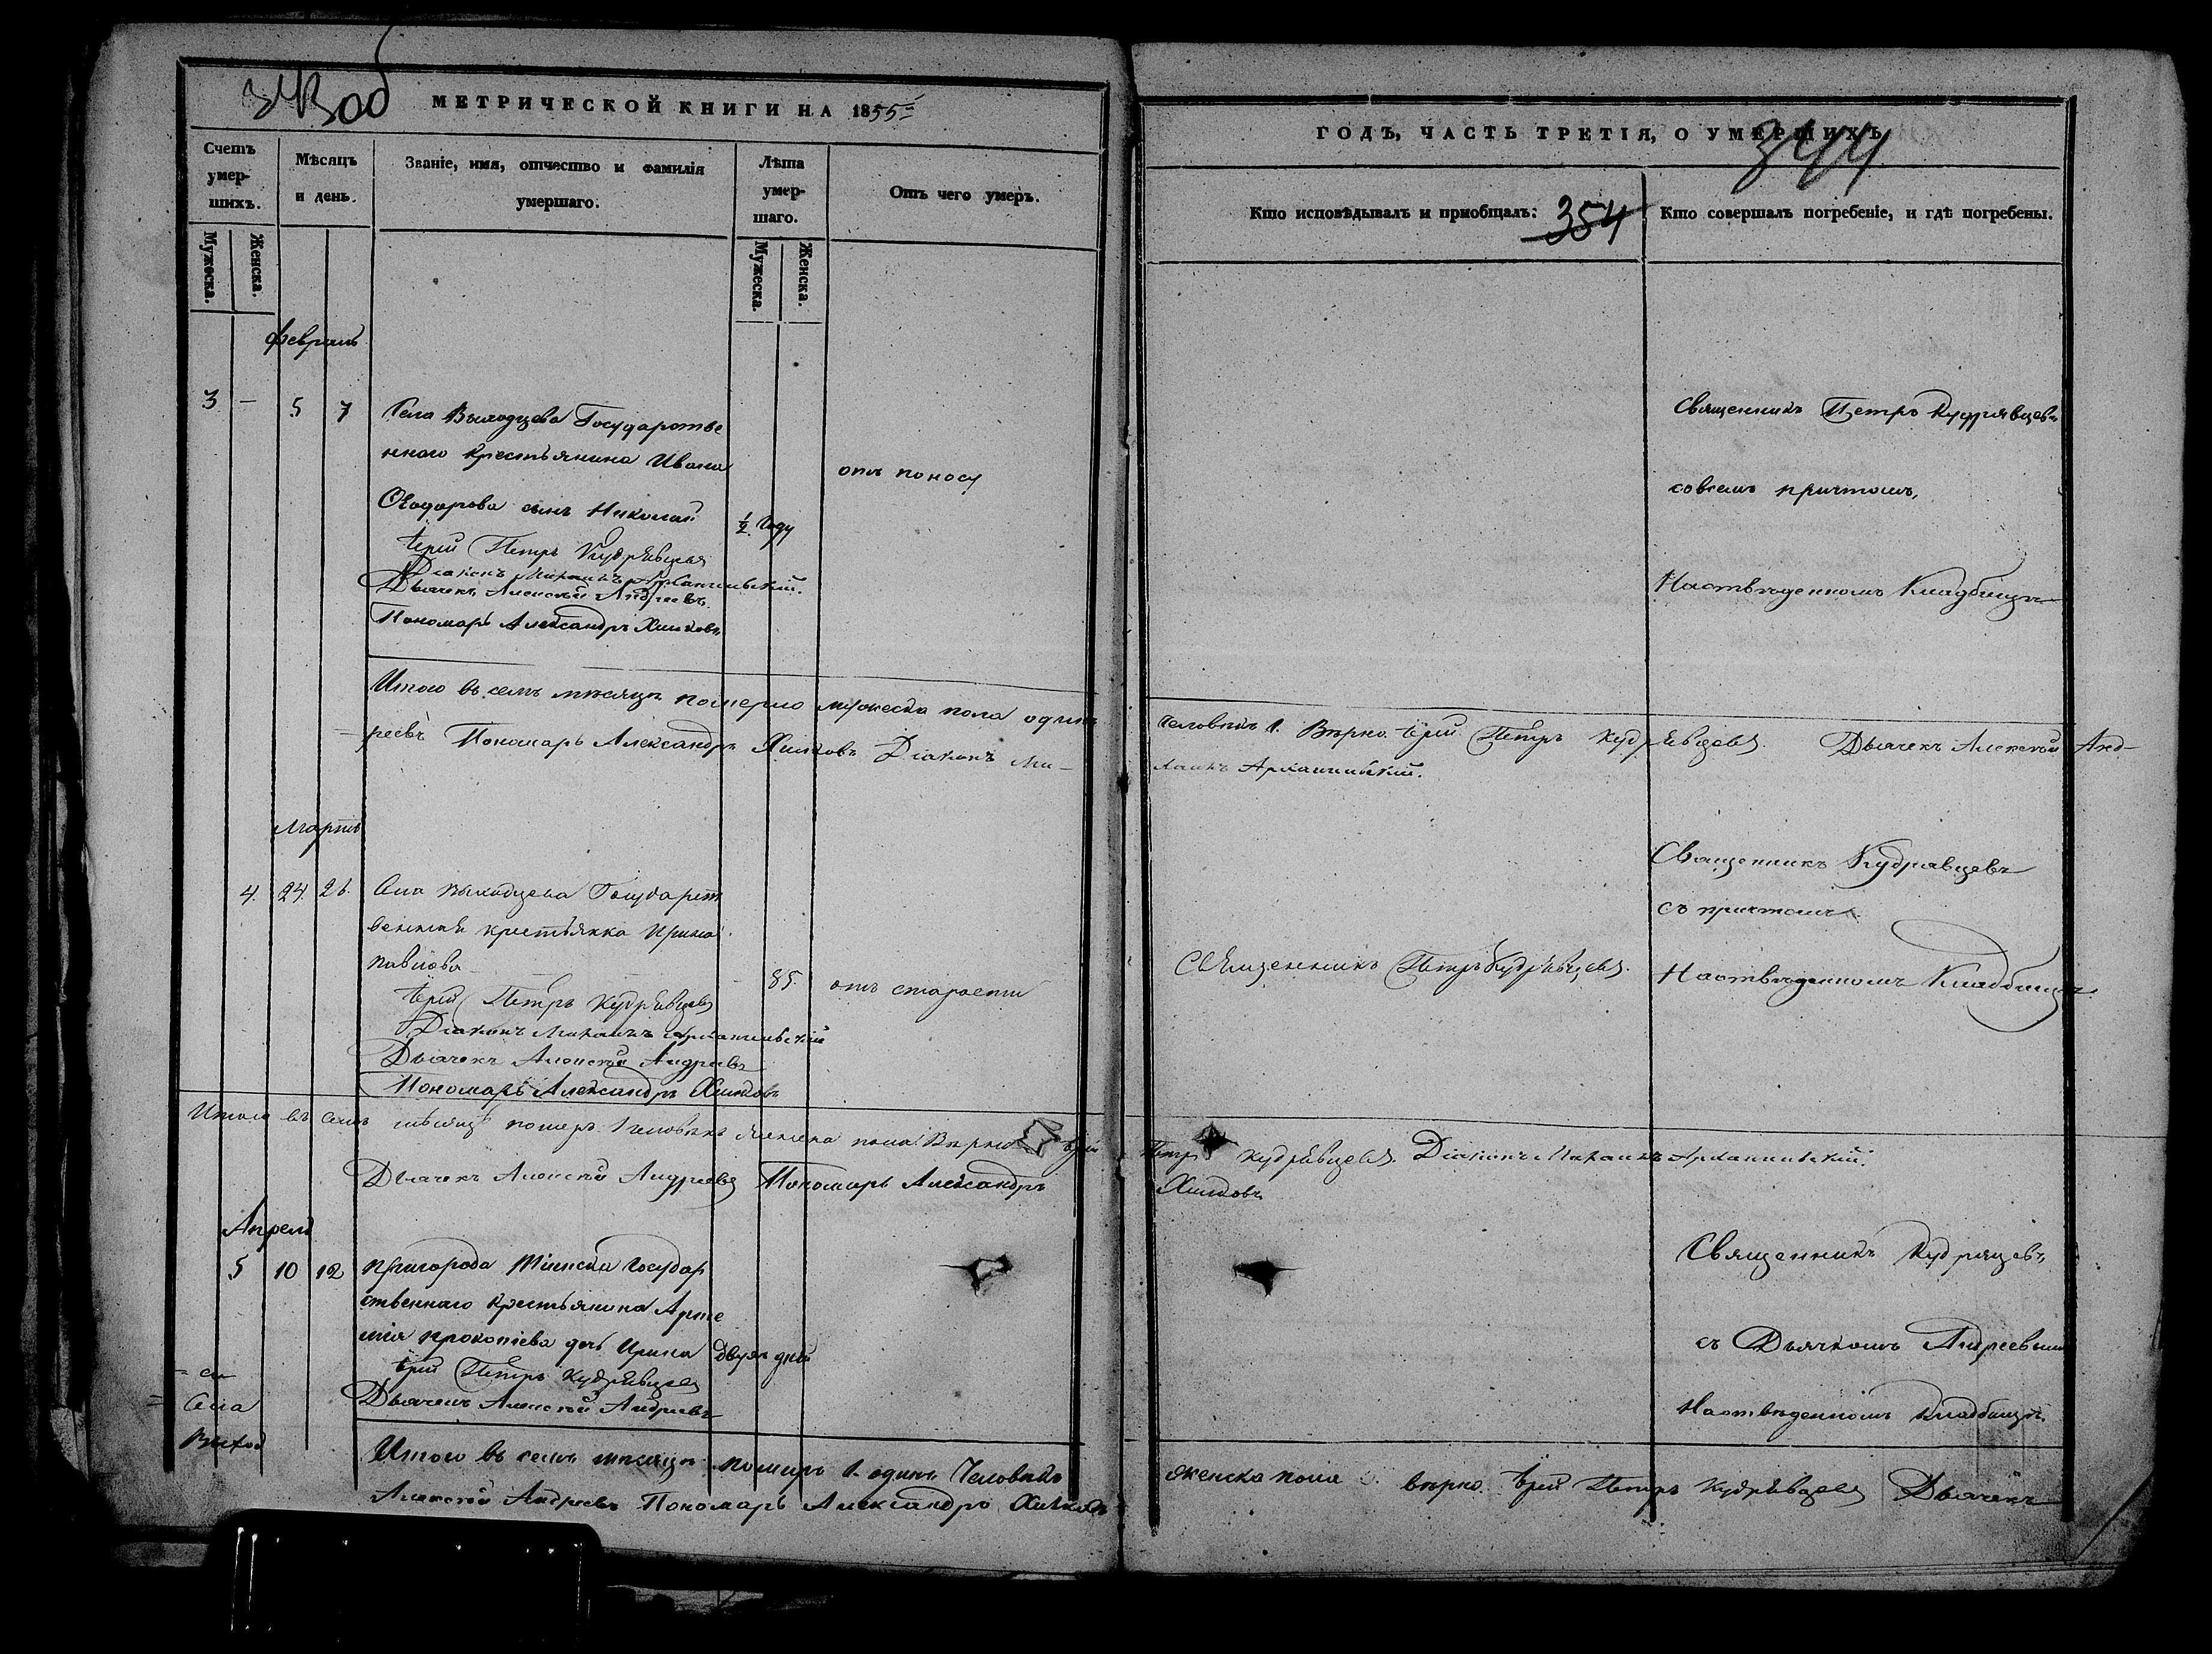 343 об
МЕТРИЧЕСКОЙ КНИГИ НА 1855й
ГОДЪ, ЧАСТЬ ТРЕТІЯ, О УМЕРШИХЪ
344
Счетъ умер-шихъ.
Мѣсяцъ и день.
Званіе, имя, отчество и фамилія умершаго.
Лѣта умер-шаго.
Отъ чего умеръ.
Кто исповѣдывалъ и пріобщалъ:
354
Кто совершалъ погребеніе, и гдѣ погребены.
Мужеска.
Женска.
Мужеска.
Женска.
Февраль
3 – 5 7
Села Выходцева Государстве
ннаго Крестьянина Ивана
Ѳеодорова сынъ Николай
½ Году
отъ поносу
Священникъ Петръ Кудрявцевъ
совсемъ причтомъ,
На отведенномъ Кладбищѣ
Іерей Петръ Кудрявцевъ
Діаконъ Михаилъ Архангельскій.
Дьячекъ Алексѣй Андреевъ.
Пономарь Александръ Хилковъ
Итого въ семъ мѣсяцѣ померло мужеска пола одинъ
человѣкъ 1. Вѣрно. Іерей Петръ Кудрявцевъ. Дьячекъ Алексѣй Анд-
реевъ Пономарь Александръ Хилковъ Діаконъ Ми-
хаилъ Архангельскій.
Мартъ
4. 24. 26.
Села Выходцева Государст
венная крестьянка Ирина
Павлова
85.
отъ старости
Священникъ Петръ Кудрявцевъ.
Священникъ Кудрявцевъ
съ причтомъ.
На отведенномъ Кладбищѣ
Іерей Петръ Кудрявцевъ
Діаконъ Михаилъ Архангельскій
Дьячекъ Алексѣй Андреевъ
Пономарь Александръ Хилковъ
Итого въ семъ мѣсяцѣ померъ 1 человѣкъ женска пола Вѣрно Іерей
Петръ Кудрявцевъ. Діаконъ Михаилъ Архангельскій.
Дьячекъ Алексѣй Андреевъ Пономарь Александръ
Хилковъ
Апрель
5 10 12
Пригорода Тіинска Государ
ственнаго Крестьянина Арте
мія Прокопіева дочь Ирина
двухъ дней
Священникъ Кудрявцевъ,
съ Дьячкомъ Андреевымъ
На отведенномъ Кладбищѣ.
Іерей Петръ Кудрявцевъ
Дьячекъ Алексѣй Андреевъ
Села
Выход
Итого въ семъ мѣсяцѣ померъ 1. одинъ Человѣкъ
женска пола вѣрно. Іерей Петръ Кудрявцевъ Дьячекъ
Алексѣй Андреевъ Пономарь Александръ Хилковъ